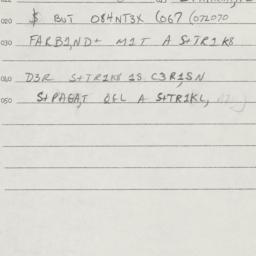 020 $ BUT O84NT3X (067 (072070
030 FARB1ND+ M1T A S+TR1K8
040 D3R S+TR1K8 1S C3R1SN
050 S+PAGAT, OEL A S+TR1KL,